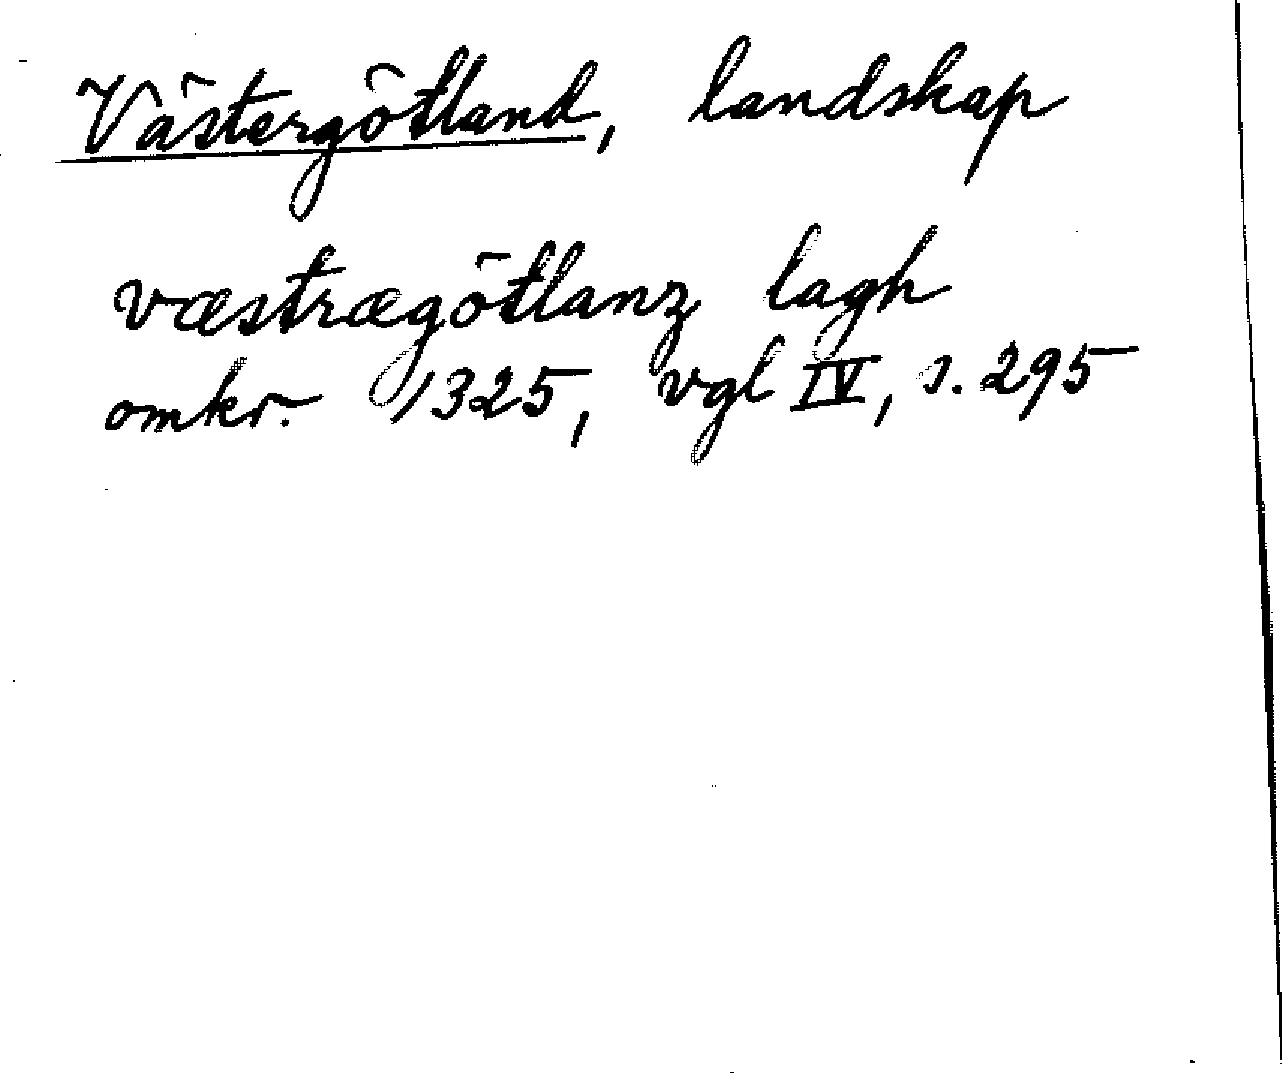 Västergötland, landskap
væstrægötlanz lagh
omkr. 1325, vgl IV, s. 295